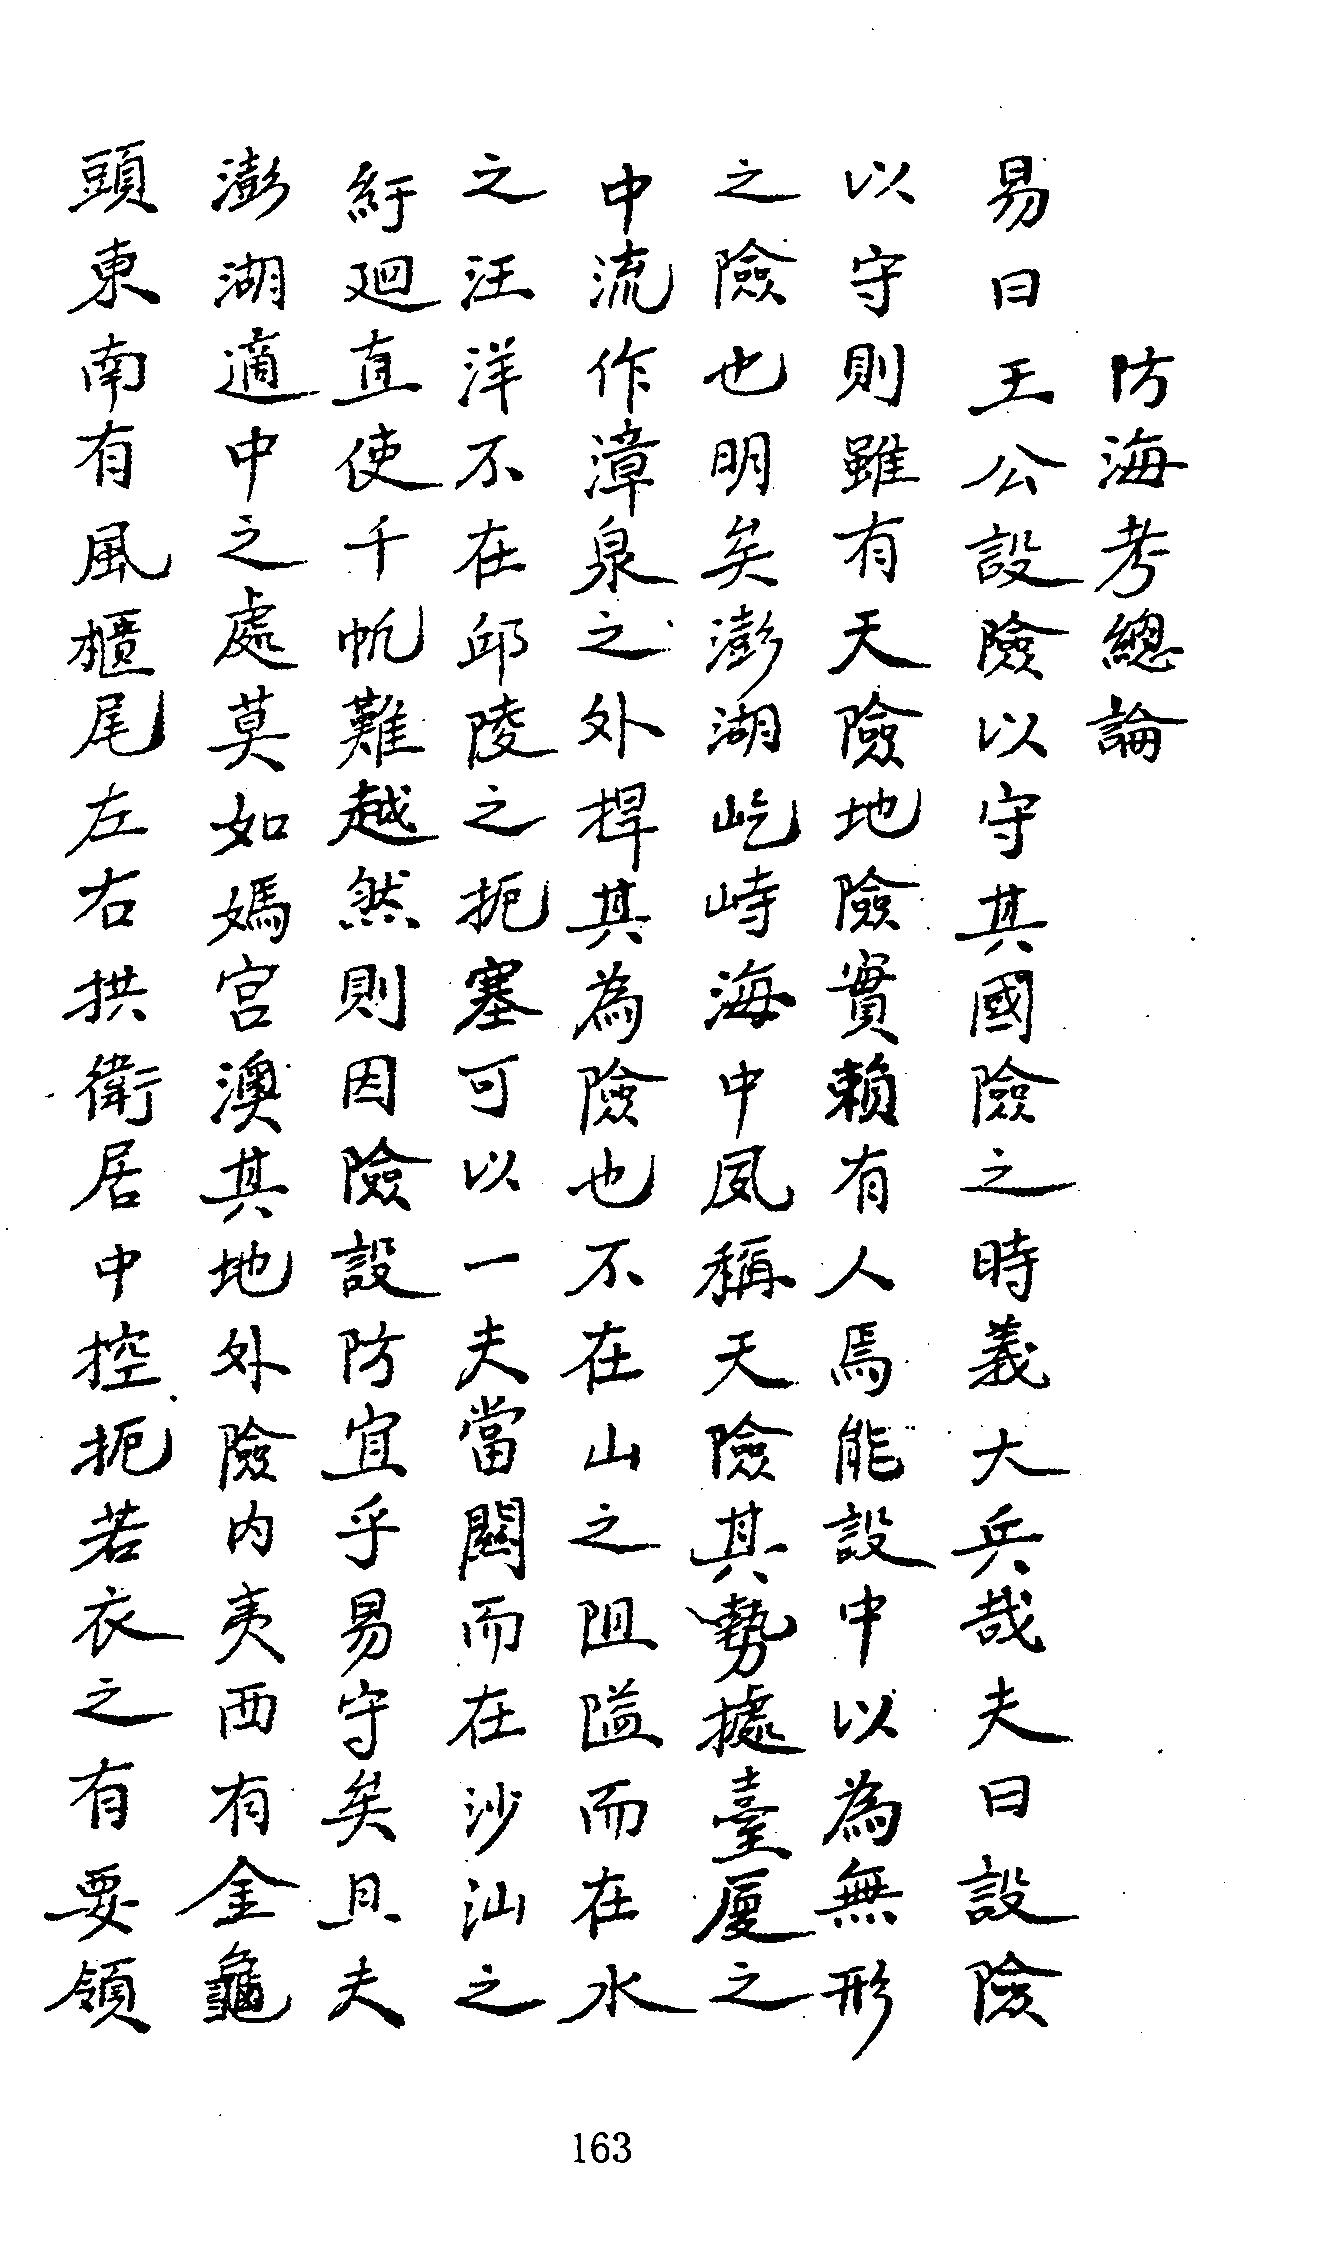 防海考總論
易曰王公設險以守其國險之時義大矣哉夫曰設險
以守則雖有天險地險實賴有人焉能設中以為無形
之險也明矣澎湖屹峙海中夙稱天險其勢據臺厦之
中流作漳泉之外捍其為險也不在山之阻隘而在水
之汪洋不在邱陵之扼塞可以一夫當關而在沙汕之
紆廻直使千帆難越然則因險設防宜乎易守矣且夫
澎湖適中之處莫如媽宮澳其地外險內夷西有金龜
頭東南有風櫃尾左右拱衛居中控扼若衣之有要領
163